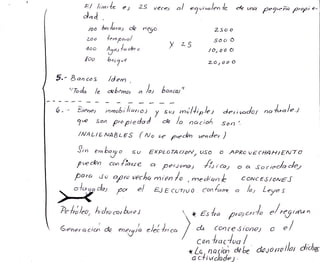 El límite es 25 veces al equivalente de una pequeña propie-
dad.
100 hectáreas de riego 2500
200 temporal 5000
400 Agostadero y 25 10,000
800 bosque 20,000
5.- Bancos Idem.
"Todo le debemos a los bancos"
6.- Bienes inmobiliarios y sus múltiples derivados naturales
que son propiedad de la nación son:
INALIENABLES (No se pueden vender)
Sin embargo su EXPLOTACION, USO O APROVECHAMIENTO
pueden confiarse a personas físicas o a sociedades
para su aprovechamiento, mediante CONCESIONES
otorgadas por el EJECUTIVO conforme a las Leyes
Petróleo, hidrocarburos
Generación de energía eléctrica
* Esta proscrito el regimen
de concesiones o el
contractual
* La nación debe desarrollar dichas
actividades.